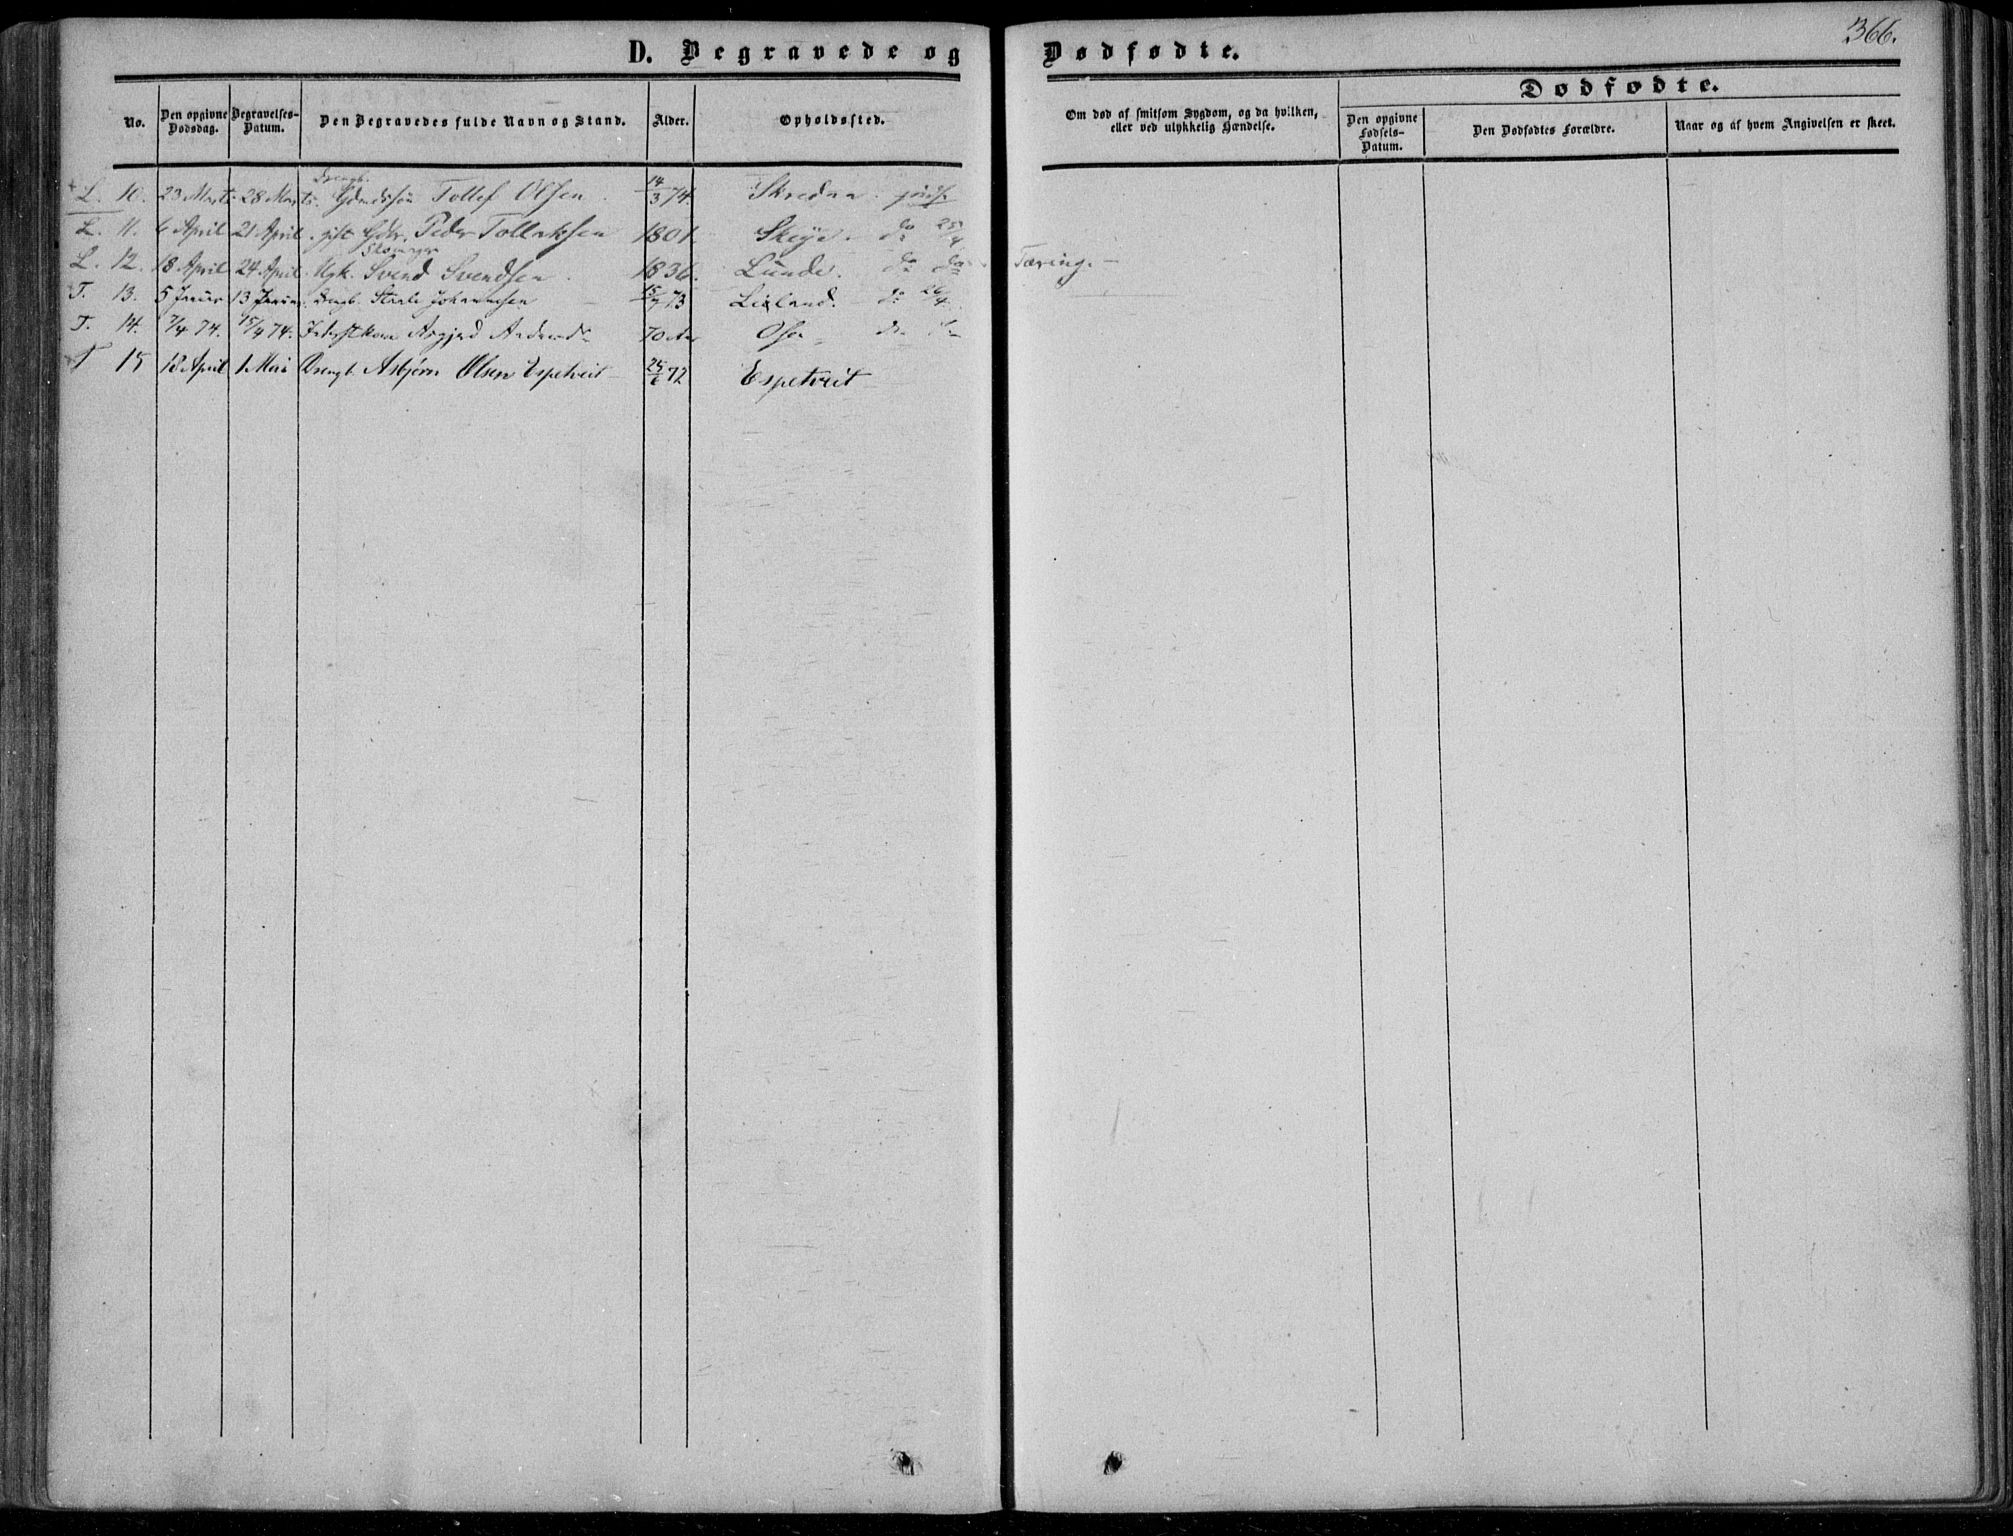 366.
D. Begravede og Dødfødte.
Dødfødte.
No. Den opgivne Dødsdag. Begravelses-Datum. Den Begravedes fulde Navn og Stand. Alder. Opholdssted. Om død af smitsom Sygdom, og da hvilken, eller ved ulykkelig Hændelse. Den opgivne Fødsels-Datum. Den Dødfødtes Forældre. Naar og af hvem Angivelsen er skeet.
Drengb.
L. 10. 23 Marts 28 Marts. Tollef Olsen 14/3 74. Skredaa
L. 11. 6 April 21 April gift Peder Tollaksen 1801. Skeije do 25/4
L. 12. 18 April 24 April Ugk. Svend Svendsen 1836. Lunde. do do Tæring.
T. 13. 5 Januar 13 Januar Drengb. Staale Johannesen 15/7 73 Leland. do 26/4.
T. 14. 7/4 74. 15/4 74. Asgjerd 70 Aar
T 15 18 April 1 Mai Drengb. Asbjørn Olsen Espetveit 25/6 72 Espetveit